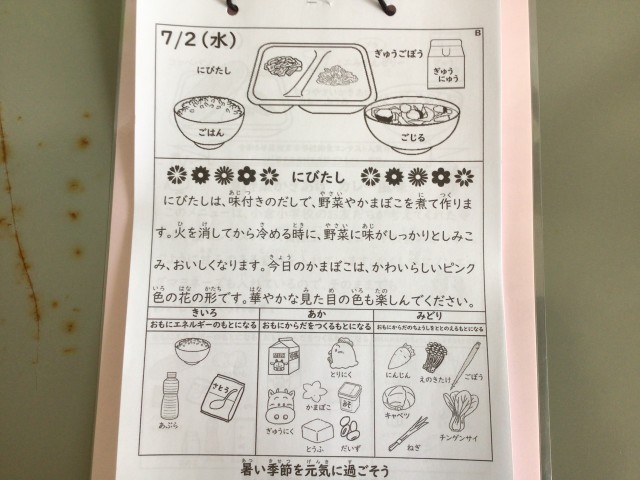 7/2(水)
B
にびたし
ぎゅうごぼう
ぎゅう
にゅう
ごはん
ごじる
にびたし
にびたしは、味付きのだしで、野菜やかまぼこを煮て作りま
す。火を消してから冷める時に、野菜に味がしっかりとしみこ
み、おいしくなります。今日のかまぼこは、かわいらしいピンク
色の花の形です。華やかな見た目の色も楽しんでください。
きいろ
あか
みどり
おもにエネルギーのもとになる
おもにからだをつくるもとになる
おもにからだのちょうしをととのえるもとになる
さとう
あぶら
とりにく
かまぼこ
みそ
ぎゅうにく
とうふ
だいず
にんじん
えのきたけ
ごぼう
キャベツ
ねぎ
チンゲンサイ
暑い季節を元気に過ごそう